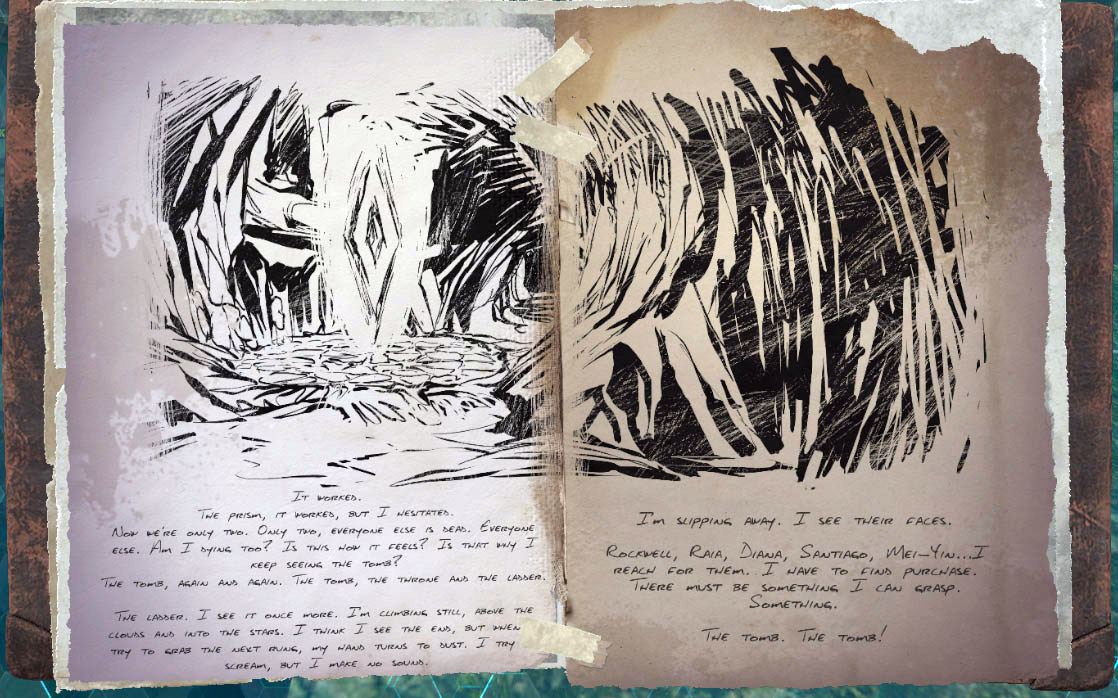 It worked.
The prism, it worked, but I hesitated.
Now we're only two. Only two, everyone else is dead. Everyone
else. Am I dying too? Is this how it feels? Is that why I
keep seeing the tomb?
The tomb, again and again. The tomb, the throne and the ladder.
The ladder. I see it once more. I'm climbing still, above the
clouds and into the stars. I think I see the end, but when
try to grab the next rung, my hand turns to dust. I try
scream, but I make no sound.
I'm slipping away. I see their faces.
Rockwell, Raia, Diana, Santiago, Mei-Yin...I
reach for them. I have to find purchase.
There must be something I can grasp.
Something.
The tomb. The tomb!